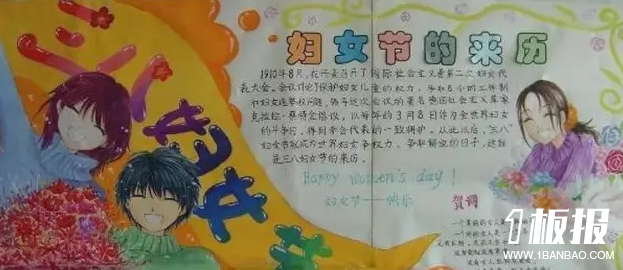 三八妇女节
妇女节的来历
1910年8月,在丹麦召开了国际社会主义者第二次妇女代
表大会。会议讨论了保护妇女儿童的权力、争取8小时工作制
和妇女选举权问题,领导这次会议的著名德国社会主义革家
克拉拉·蔡特金倡议,以每年的3月8日作为全世界妇女
的斗争日,得到与会代表的一致拥护。从此以后,三八
妇女节就成为世界妇女争权力、争和解放的日子,这就
是三八妇女节的来历。
Happy women's day!
妇女节——快乐
贺词
一个美丽的女人是
一个
1板报
WWW.1BANBAO.COM